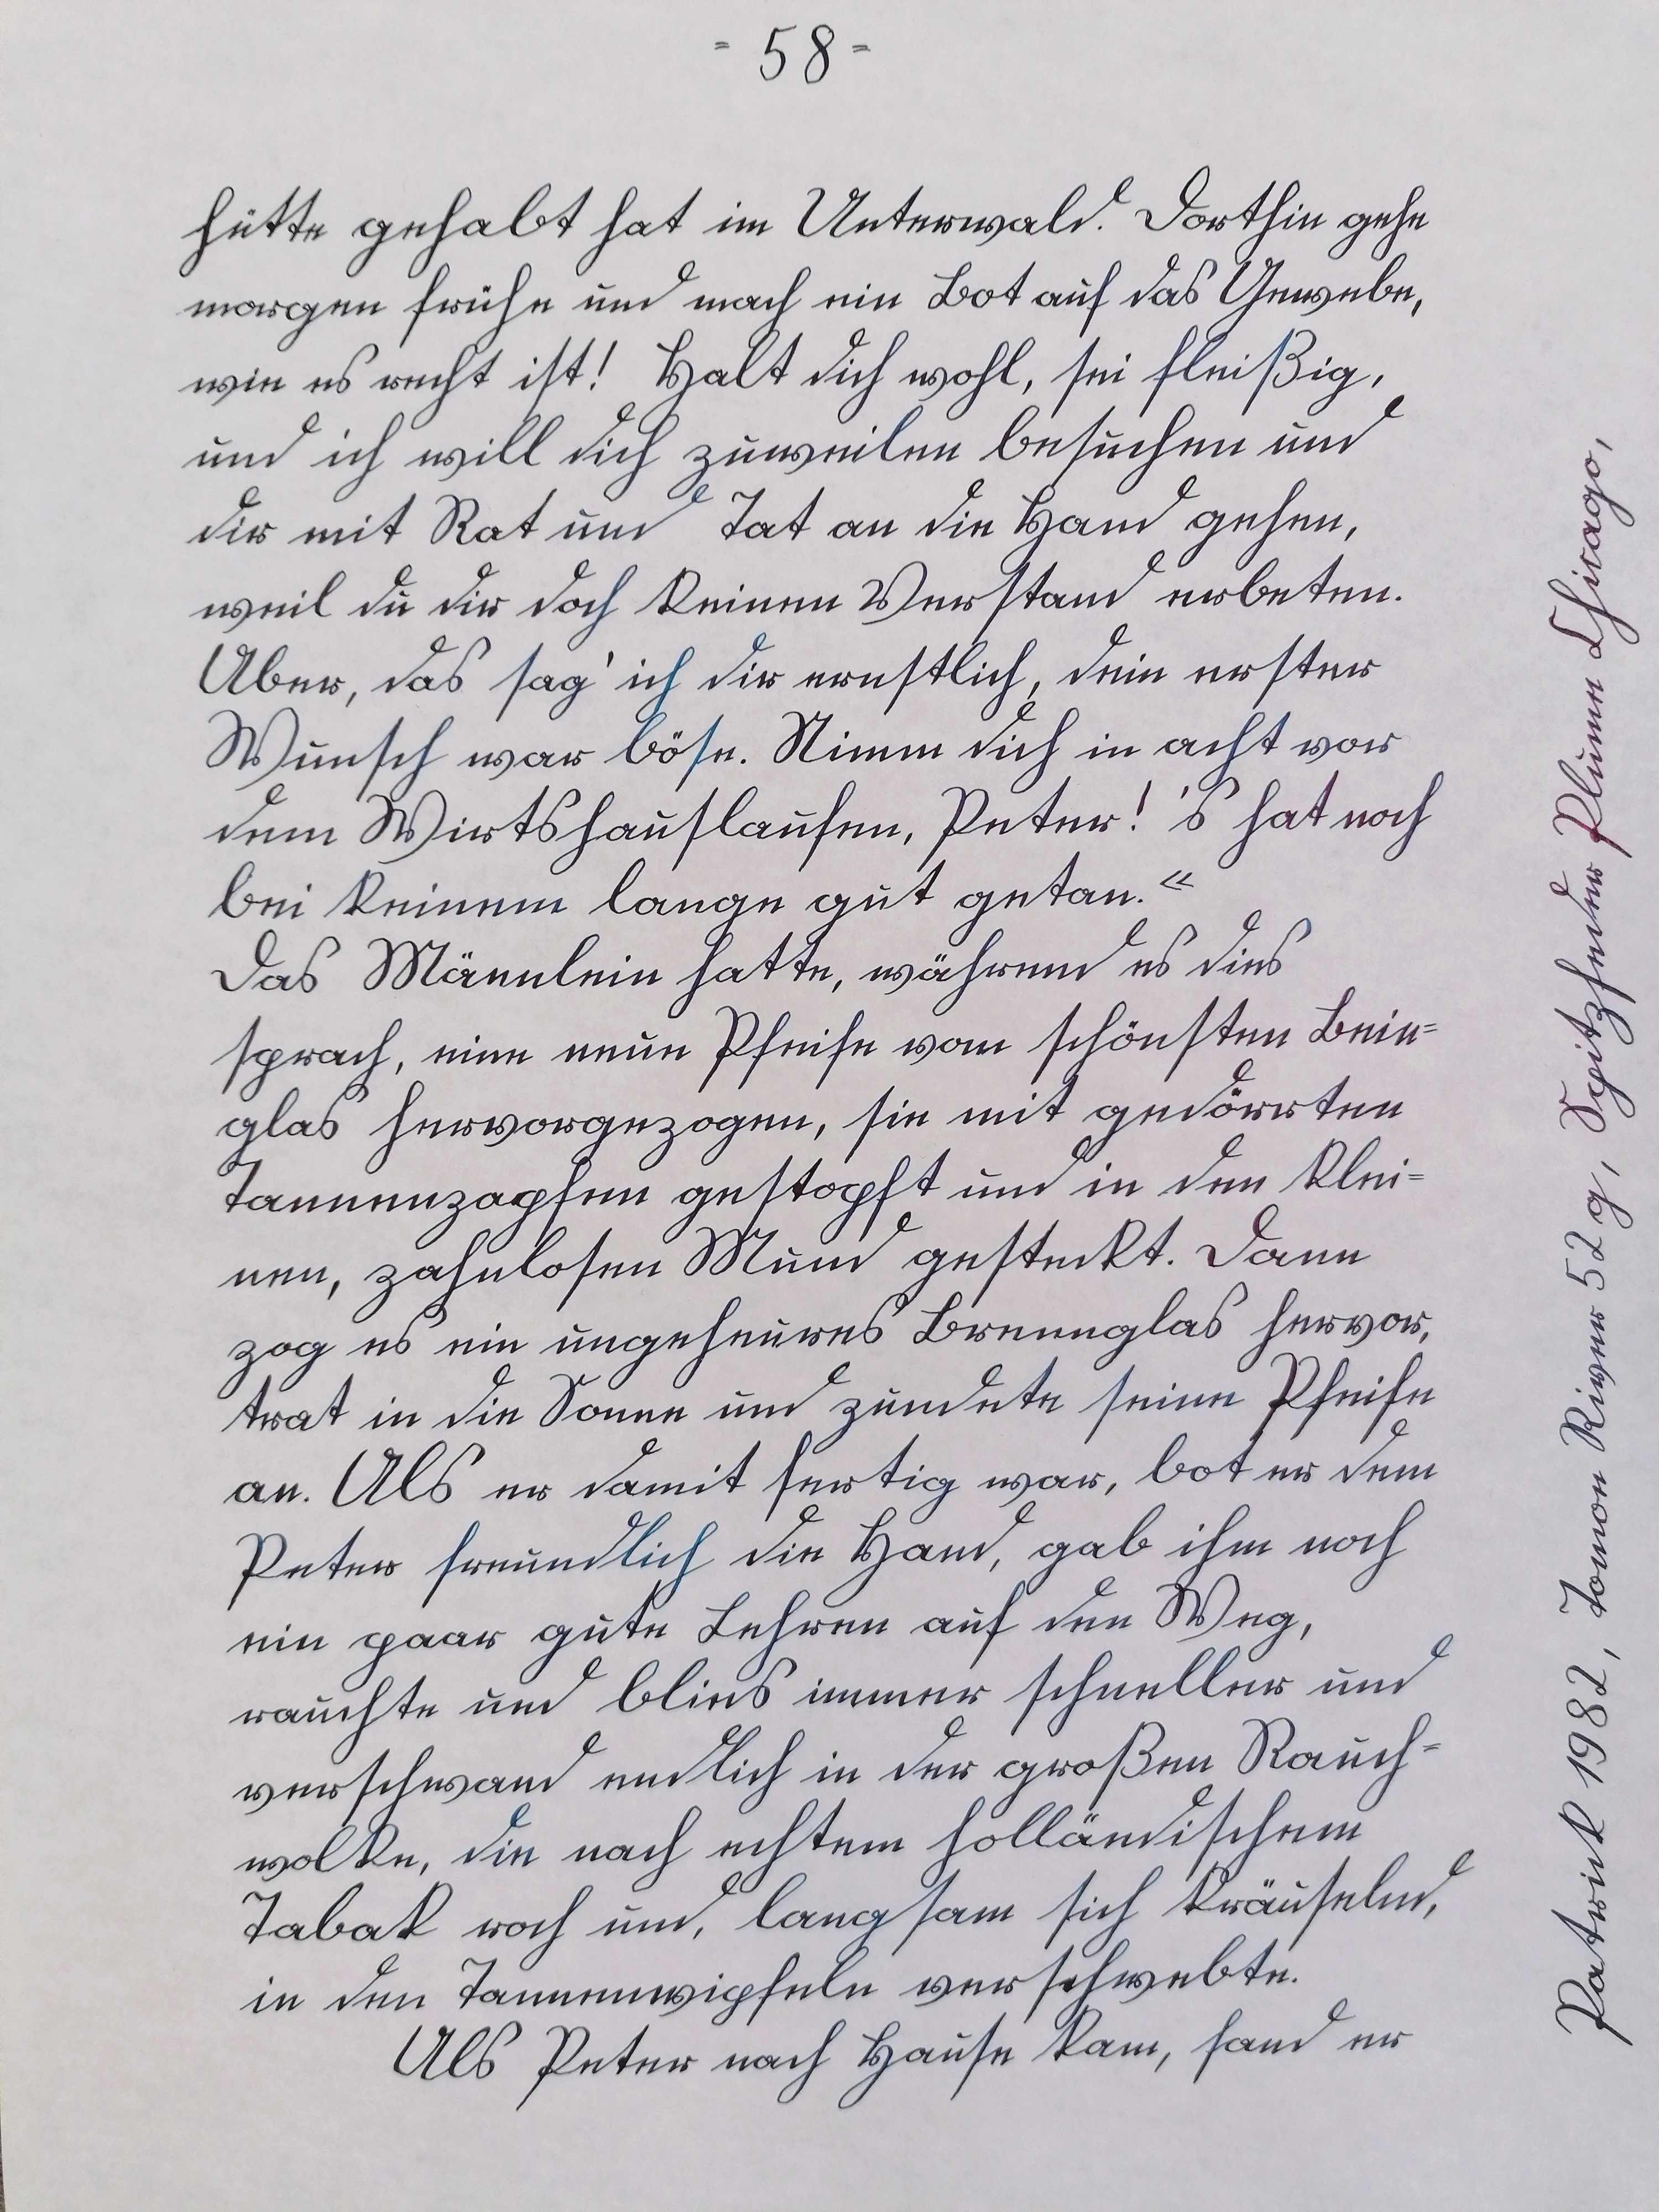 - 58 -
hütte gehabt hat im Unterwald. Dorthin gehe
morgen frühe und mach ein Bot auf das Gewebe,
wie es recht ist! Halt dich wohl, sei fleißig,
und ich will dich zuweilen besuchen und
dir mit Rat und Tat an die Hand gehen,
weil du dir doch keinen Verstand erbeten.
Aber, das sag' ich dir ernstlich, dein erster
Wunsch war böse. Nimm dich in acht vor
dem Wirtshauslaufen, Peter! 's hat noch
bei keinem lange gut getan.«
Das Männlein hatte, während es dies
sprach, eine neue Pfeife vom schönsten Bein=
glas hervorgezogen, sie mit gedörrten
Tannenzapfen gestopft und in den klei=
nen, zahnlosen Mund gesteckt. Dann
zog es ein ungeheures Brennglas hervor,
trat in die Sonne und zündete seine Pfeife
an. Als er damit fertig war, bot er dem
Peter freundlich die Hand, gab ihm noch
ein paar gute Lehren auf den Weg,
rauchte und blies immer schneller und
verschwand endlich in der großen Rauch=
wolke, die nach echtem holländischem
Tabak roch und, langsam sich kräuselnd,
in den Tannenwipfeln verschwebte.
Als Peter nach Hause kam, fand er
Patrick 1982, Tomoe River 52 g, Spitzfeder Plume Chicago,